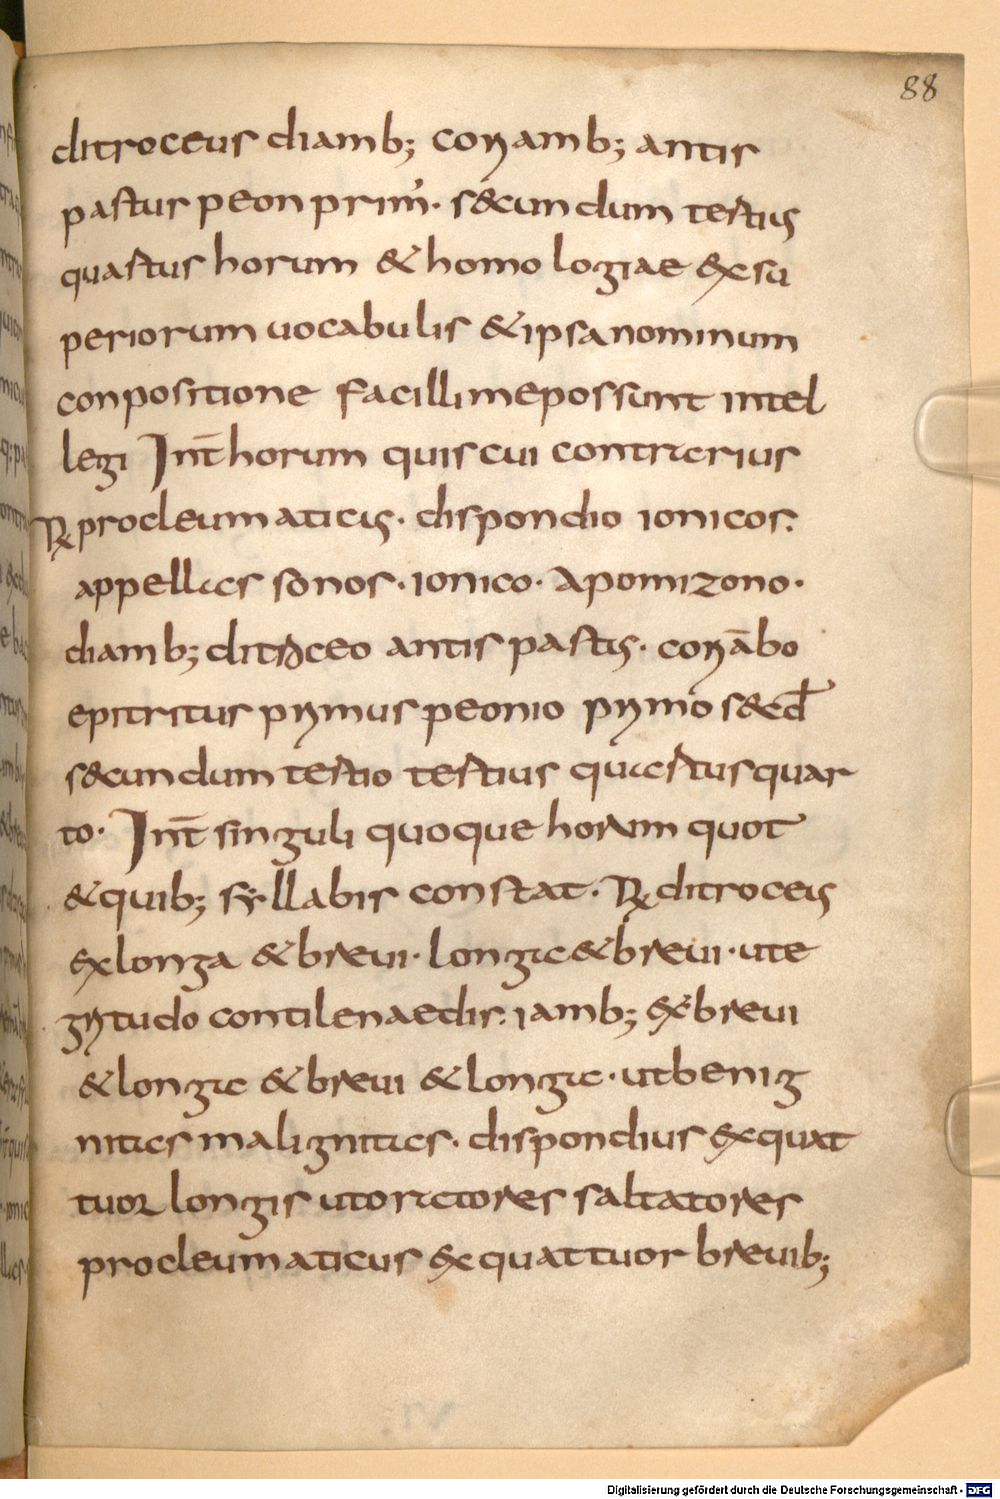 88
ditroceus diamb; coriamb; antis
pastus peon prim᾽. s&cundum tertius
quartus horum & homologiae ex su
periorum uocabulis & ipsa nominum
conpositione facillime possunt intel
legi Int̄ horum quis cui contrarius
R procleumaticis. dispondio ionicos.
appellas sonos. ionico. apomizono.
diamb; ditroceo antispastis. coriābo
epitritus primus peonio primo s&cd̄
s&cundum tertio tertius quartus quar
to. Int̄ singuli quoque horum quot
& quib; syllabis constat. R ditroceis
ex longa & breui. longa & breui. ut e
gritudo contilenae dis. iamb; ex breui
& longa & breui & longa. ut benig
nitas malignitas. dispondius ex quat
tuor longis ut oratores saltatores
procleumaticus ex quattuor breuib;
Digitalisierung gefördert durch die Deutsche Forschungsgemeinschaft - DFG